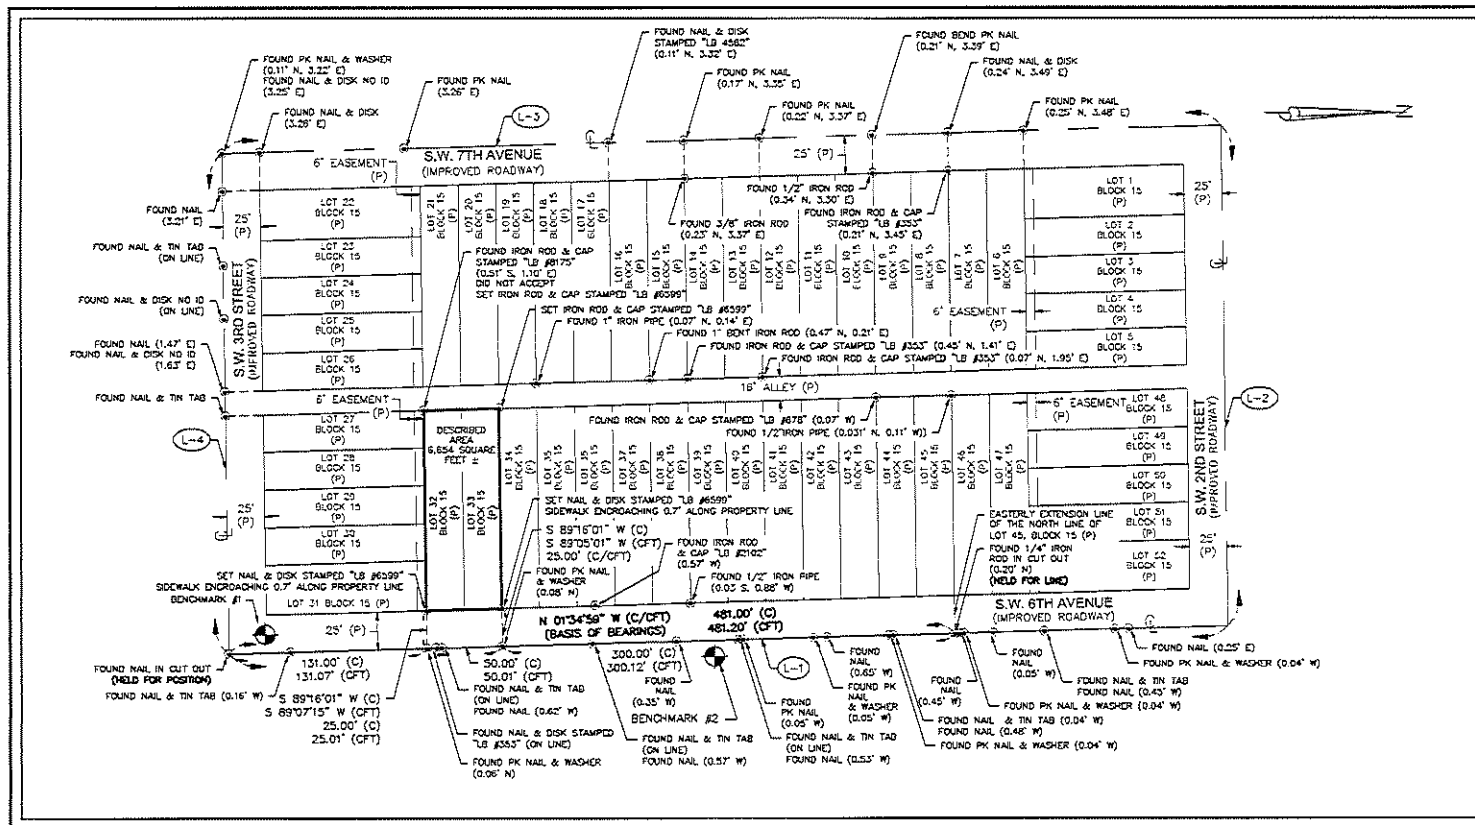 FOUND PK NAIL & WASHER
(0.11' N, 3.22' E)
FOUND NAIL & DISK NO ID
(3.25' E)
FOUND NAIL & DISK
(3.26' E)
FOUND PK NAIL
(3.26' E)
L-3
FOUND NAIL & DISK
STAMPED "LB 4562"
(0.11' N, 3.32' E)
FOUND PK NAIL
(0.17' N, 3.35' E)
FOUND PK NAIL
(0.22' N, 3.37' E)
FOUND BEND PK NAIL
(0.21' N, 3.39' E)
FOUND NAIL & DISK
(0.24' N, 3.49' E)
FOUND PK NAIL
(0.25' N, 3.48' E)
N
S.W. 7TH AVENUE
(IMPROVED ROADWAY)
6' EASEMENT
(P)
25' (P)
25'
(P)
FOUND NAIL
(3.21' E)
25'
(P)
FOUND NAIL & TIN TAB
(ON LINE)
FOUND NAIL & DISK NO ID
(ON LINE)
FOUND NAIL (1.47' E)
FOUND NAIL & DISK NO ID
(1.63' E)
FOUND NAIL & TIN TAB
L-4
S.W. 3RD STREET
(IMPROVED ROADWAY)
LOT 22
BLOCK 15
(P)
LOT 23
BLOCK 15
(P)
LOT 24
BLOCK 15
(P)
LOT 25
BLOCK 15
(P)
LOT 26
BLOCK 15
(P)
LOT 21
BLOCK 15
(P)
LOT 20
BLOCK 15
(P)
LOT 19
BLOCK 15
(P)
LOT 18
BLOCK 15
(P)
LOT 17
BLOCK 15
(P)
LOT 16
BLOCK 15
(P)
LOT 15
BLOCK 15
(P)
LOT 14
BLOCK 15
(P)
LOT 13
BLOCK 15
(P)
LOT 12
BLOCK 15
(P)
LOT 11
BLOCK 15
(P)
LOT 10
BLOCK 15
(P)
LOT 9
BLOCK 15
(P)
LOT 8
BLOCK 15
(P)
LOT 7
BLOCK 15
(P)
LOT 6
BLOCK 15
(P)
LOT 1
BLOCK 15
(P)
LOT 2
BLOCK 15
(P)
LOT 3
BLOCK 15
(P)
LOT 4
BLOCK 15
(P)
LOT 5
BLOCK 15
(P)
FOUND 1/2" IRON ROD
(0.34' N, 3.30' E)
FOUND IRON ROD & CAP
STAMPED "LB #353"
(0.21' N, 3.45' E)
FOUND 3/8" IRON ROD
(0.23' N, 3.37' E)
FOUND IRON ROD & CAP
STAMPED "LB #8175"
(0.51' S, 1.10' E)
DID NOT ACCEPT
SET IRON ROD & CAP STAMPED "LB #6599"
SET IRON ROD & CAP STAMPED "LB #6599"
FOUND 1" IRON PIPE (0.07' N, 0.14' E)
FOUND 1" BENT IRON ROD (0.47' N, 0.21' E)
FOUND IRON ROD & CAP STAMPED "LB #353" (0.45' N, 1.41' E)
FOUND IRON ROD & CAP STAMPED "LB #353" (0.07' N, 1.95' E)
6' EASEMENT
(P)
16' ALLEY (P)
6' EASEMENT
(P)
6' EASEMENT
(P)
FOUND IRON ROD & CAP STAMPED "LB #678" (0.07' W)
FOUND 1/2"IRON PIPE (0.031' N, 0.11' W))
LOT 27
BLOCK 15
(P)
LOT 28
BLOCK 15
(P)
LOT 29
BLOCK 15
(P)
LOT 30
BLOCK 15
(P)
LOT 31 BLOCK 15 (P)
DESCRIBED
AREA
6,654 SQUARE
FEET ±
LOT 32
BLOCK 15
(P)
LOT 33
BLOCK 15
(P)
LOT 34
BLOCK 15
(P)
LOT 35
BLOCK 15
(P)
BLOCK 15
(P)
LOT 37
BLOCK 15
(P)
LOT 38
BLOCK 15
(P)
LOT 39
BLOCK 15
(P)
LOT 40
BLOCK 15
(P)
LOT 41
BLOCK 15
(P)
LOT 42
BLOCK 15
(P)
LOT 43
BLOCK 15
(P)
LOT 44
BLOCK 15
(P)
LOT 45
BLOCK 15
(P)
LOT 46
BLOCK 15
(P)
LOT 47
BLOCK 15
(P)
LOT 48
BLOCK 15
(P)
LOT 49
BLOCK 15
(P)
LOT 50
BLOCK 15
(P)
LOT 51
BLOCK 15
(P)
LOT 52
BLOCK 15
(P)
L-2
S.W. 2ND STREET
(IMPROVED ROADWAY)
25'
(P)
25'
(P)
SET NAIL & DISK STAMPED "LB #6599"
SIDEWALK ENCROACHING 0.7' ALONG PROPERTY LINE
S 89°16'01" W (C)
S 89°05'01" W (CFT)
25.00' (C/CFT)
FOUND IRON ROD
& CAP "LB #2102"
(0.57' W)
FOUND PK NAIL
& WASHER
(0.08' N)
FOUND 1/2" IRON PIPE
(0.03 S, 0.88' W)
EASTERLY EXTENSION LINE
OF THE NORTH LINE OF
LOT 45, BLOCK 15 (P)
FOUND 1/4" IRON
ROD IN CUT OUT
(0.20' N)
(HELD FOR LINE)
SET NAIL & DISK STAMPED "LB #6599"
SIDEWALK ENCROACHING 0.7' ALONG PROPERTY LINE
BENCHMARK #1
25' (P)
N 01°34'59" W (C/CFT)
(BASIS OF BEARINGS)
481.00' (C)
481.20' (CFT)
S.W. 6TH AVENUE
(IMPROVED ROADWAY)
FOUND NAIL IN CUT OUT
(HELD FOR POSITION)
FOUND NAIL & TIN TAB (0.16' W)
131.00' (C)
131.07' (CFT)
S 89°16'01" W (C)
S 89°07'15" W (CFT)
25.00' (C)
25.01' (CFT)
50.00' (C)
50.01' (CFT)
FOUND NAIL & TIN TAB
(ON LINE)
FOUND NAIL (0.62' W)
FOUND NAIL & DISK STAMPED
"LB #353" (ON LINE)
FOUND PK NAIL & WASHER
(0.06' N)
300.00' (C)
300.12' (CFT)
FOUND
NAIL
(0.35' W)
BENCHMARK #2
L-1
FOUND NAIL & TIN TAB
(ON LINE)
FOUND NAIL (0.57' W)
FOUND
PK NAIL
(0.05' W)
FOUND NAIL & TIN TAB
(ON LINE)
FOUND NAIL (0.53' W)
FOUND
NAIL
(0.65' W)
FOUND PK
NAIL
& WASHER
(0.05' W)
FOUND
NAIL
(0.45' W)
FOUND NAIL & TIN TAB (0.04' W)
FOUND NAIL (0.48' W)
FOUND PK NAIL & WASHER (0.04' W)
FOUND
NAIL
(0.05' W)
FOUND PK NAIL & WASHER (0.04' W)
FOUND NAIL & TIN TAB
FOUND NAIL (0.43' W)
FOUND PK NAIL & WASHER (0.04' W)
FOUND NAIL (0.25' E)